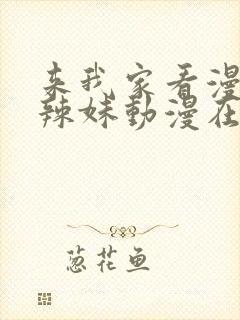 来我家看漫
辣妹動漫在
葱花鱼